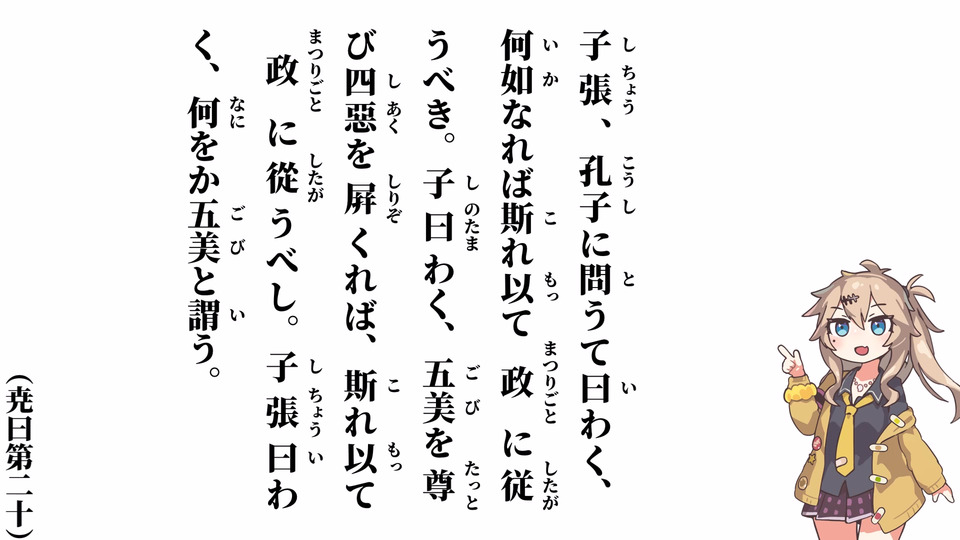 子張、孔子に問うて曰わく、
何如なれば斯れ以て政に従
うべき。子曰わく、五美を尊
び四惡を屛くれば、斯れ以て
政に從うべし。子張曰わ
く、何をか五美と謂う。
(尭曰第二十)